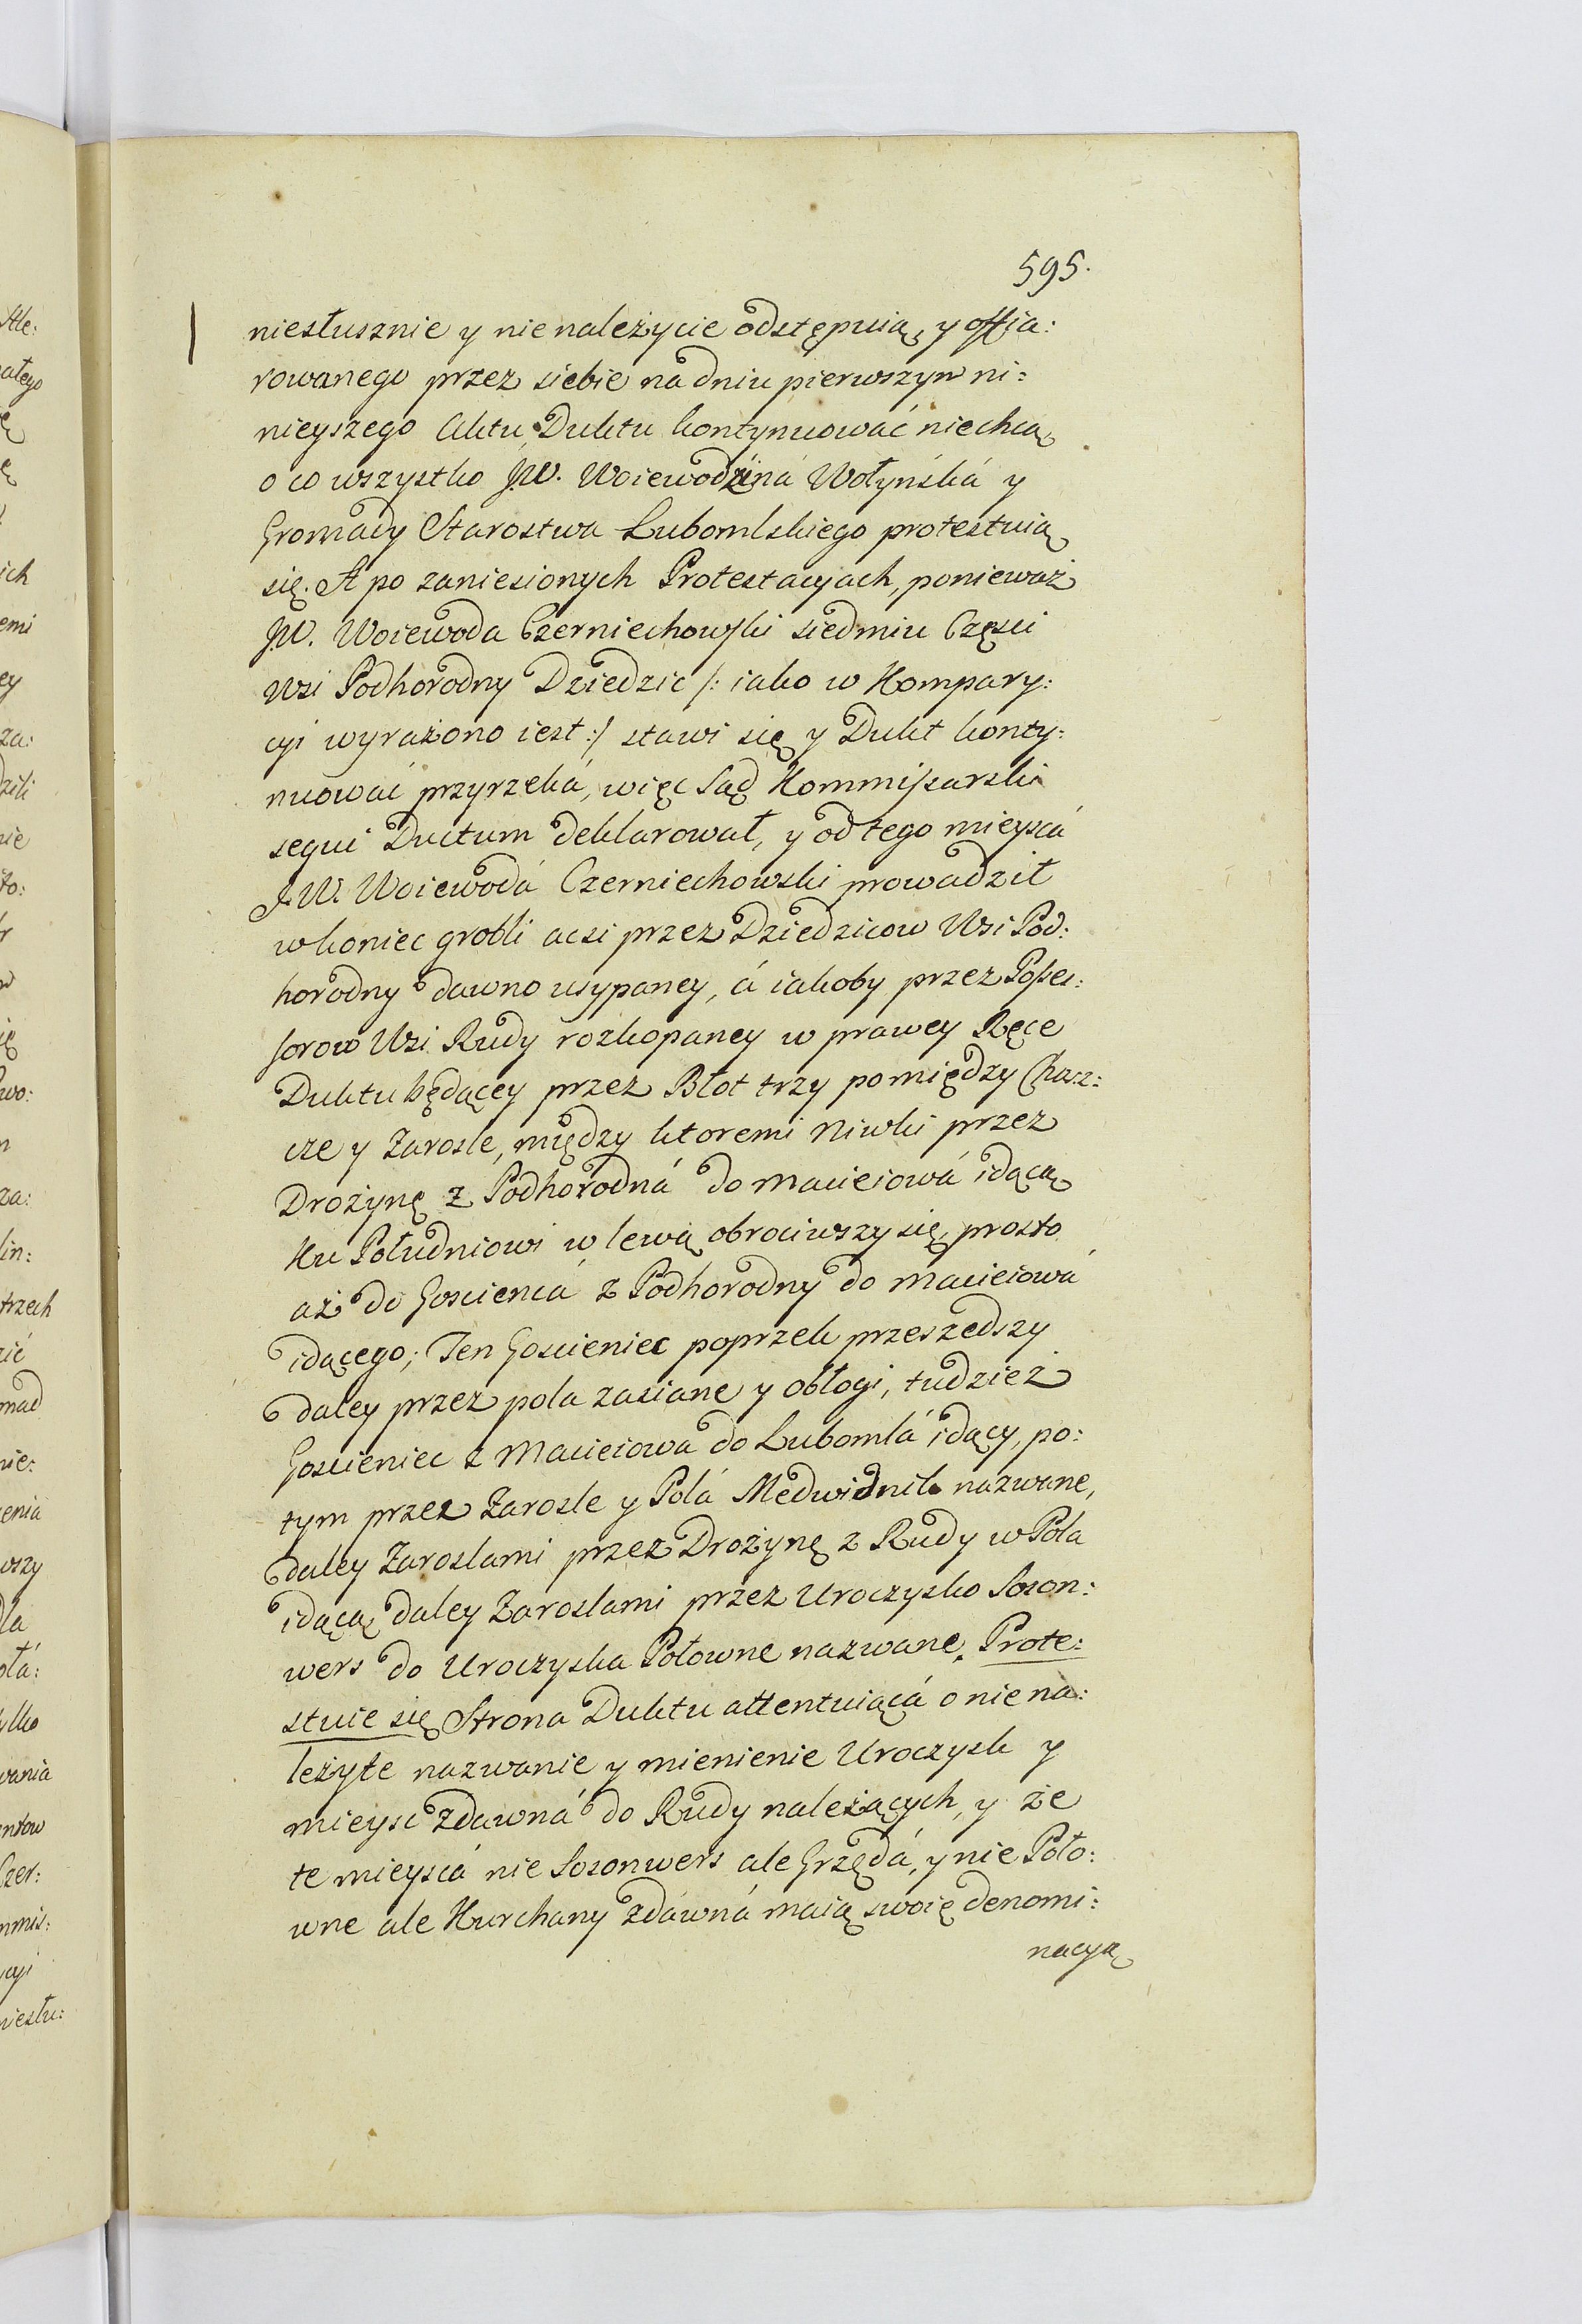 595.
niesłusznie y nienależycie odstępuią, y offia:
rowanego przez siebie na dniu pierwszym ni:
nieyszego Aktu, Duktu kontynuować niechcą
o co wszystko JW. Woiewodzina Wołyńská y
Gromady Starostwa Lubomlskiego protestuią
się. A po zaniesionych Protestacyach, ponieważ
JW. Woiewoda Czerniechowski siedmiu Części
Wsi Podhorodny Dziedzic /: iako w Kompary:
cyi wyrażono iest :/ stawi się y Dukt konty:
nuować przyrzeká, więc Sąd Kommissarski
sequi Ductum deklarował, y od tego mieyscá
J.W. Woiewodá Czerniechowski prowadził
w koniec grobli acsi przez Dziedzicow Wsi Pod:
horodny dawno usypaney, á iakoby przez Posses:
sorow Wsi Rudy rozkopaney w prawey Ręce
Duktu będącey przez Błot trzy pomiędzy Charz:
cze y Zarosle, między ktoremi Niwki przez
Drożynę z Podhorodná do Macieiowá idącą
Ku Południowi w lewą obrociwszy się, prosto
aż do Goscienca z Podhorodny do Macieiowá
idącego; Ten Goscieniec poprzek przeszedszy
daley przez pola zasiane y obłogi, tudzież
Goscieniec z Macieiowa do Lubomlá idący, po:
tym przez Zarosle y Polá Medwidnik nazwane,
daley Zaroslami przez Drożynę z Rudy w Pola
idącą daley Zaroslami przez Uroczysko Soson:
wers do Uroczyska Połowne nazwane. Prote:
stuie się Strona Duktu attentuiącá o niena:
leżyte nazwanie y mienienie Uroczysk y
mieysc zdawná do Rudy należących, y że
te mieyscá nie Sosonwers ale Grzędá, y nie Poło:
wne ale Kurchany zdáwná maią swoię denomi:
nacyą
Ale:
ałego
ich
emi
ey
za:
zili
nie
to:
wo:
za:
lin:
trzech
zić
mad
nie:
enia
wszy
dla
ołá:
ylko
wania
ntow
Czer:
mmis:
cyi
niesłu: